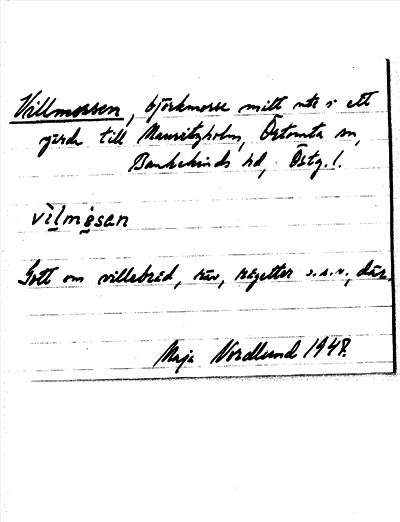 Villmossen, björkmosse mitt ute i ett
gärde till Mauritzholm, Östomta sn,
Bankekinds hd, Östg. l.
vìlmòsan
Gott om villebråd, räv, rägetter o.s.v., där.
Maja Nordlund 1948.